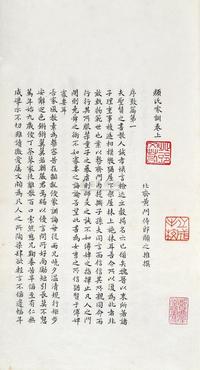 顏氏家訓卷上
北齊黃門侍郎顏之推撰
序致篇第一
夫聖賢之書教人誠孝慎言檢迹立身揚名亦已備矣魏晉以來所著諸
子理重事複遞相模斆猶屋下架屋床上施床耳吾今所以復為此者非
敢軌物範世也業以整齊門內提撕子孫夫同言而信信其所親同命而
行行其所服禁童子之暴謔則師友之誡不如傅婢之指揮止凡人之鬥
鬩則堯舜之道不如寡妻之誨諭吾望此書為女曹之所信猶賢於傅婢
寡妻耳
吾家風教素為整密昔在齠齔便蒙誨誘每從兩兄曉夕溫凊規行矩步
安辭定色鏘鏘翼翼若朝嚴君焉賜以優言問所好尚勵短引長莫不懇
篤年始九歲便丁荼蓼家塗離散百口索然慈兄鞠養苦辛備至有仁無
威導示不切雖讀禮傳微愛屬文頗為凡人之所陶染肆欲輕言不備邊幅